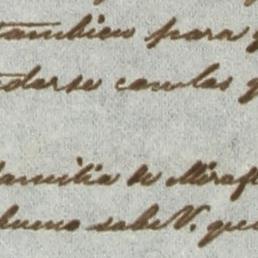 tambien para
darse con las
familia de Miraf
bueno sabe V. que